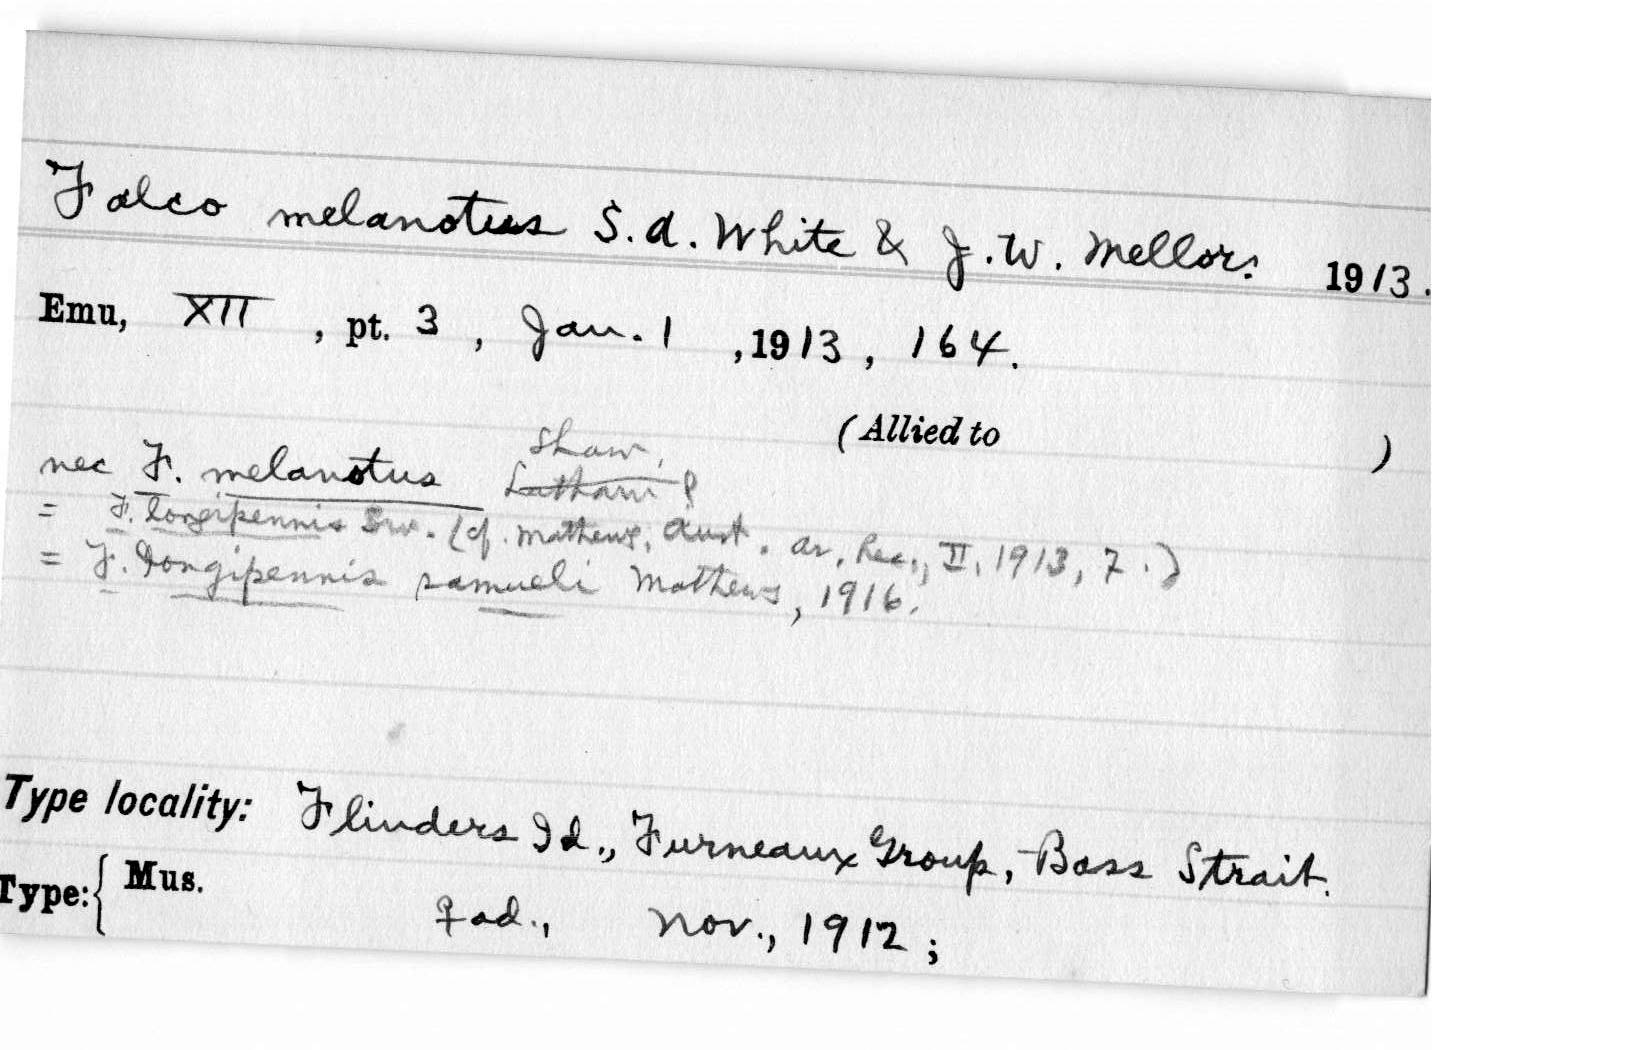 Falco melanotus S.A. White & J.W. Mellor. 1913.
Emu, XII, pt. 3, Jan. 1, 1913, 164.
(Allied to )
Shaw,
nec F. melanotus Latham ?
= F. longipennis Sw. (cf. Mathews, Aust. Av. Rec., II, 1913, 7.)
= F. longipennis samueli Mathews, 1916.
Type locality: Flinders Id., Furneaux Group, Bass Strait.
Type: { Mus.
♀ ad., Nov., 1912;